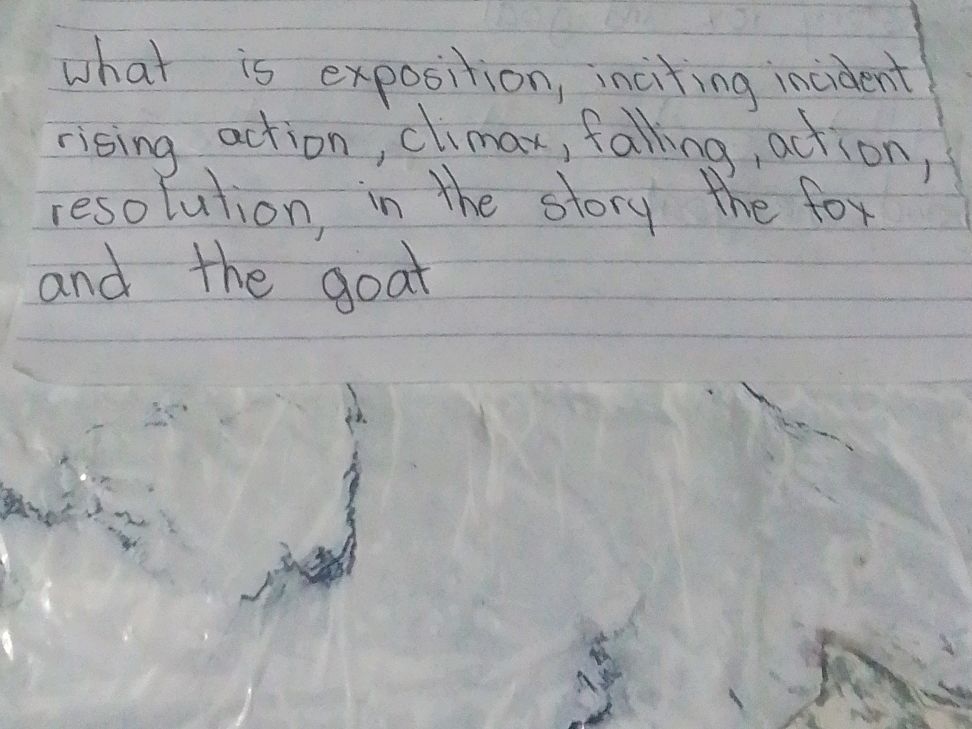 what is exposition, inciting incident
rising action, climax, falling, action,
resolution, in the story the fox
and the goat